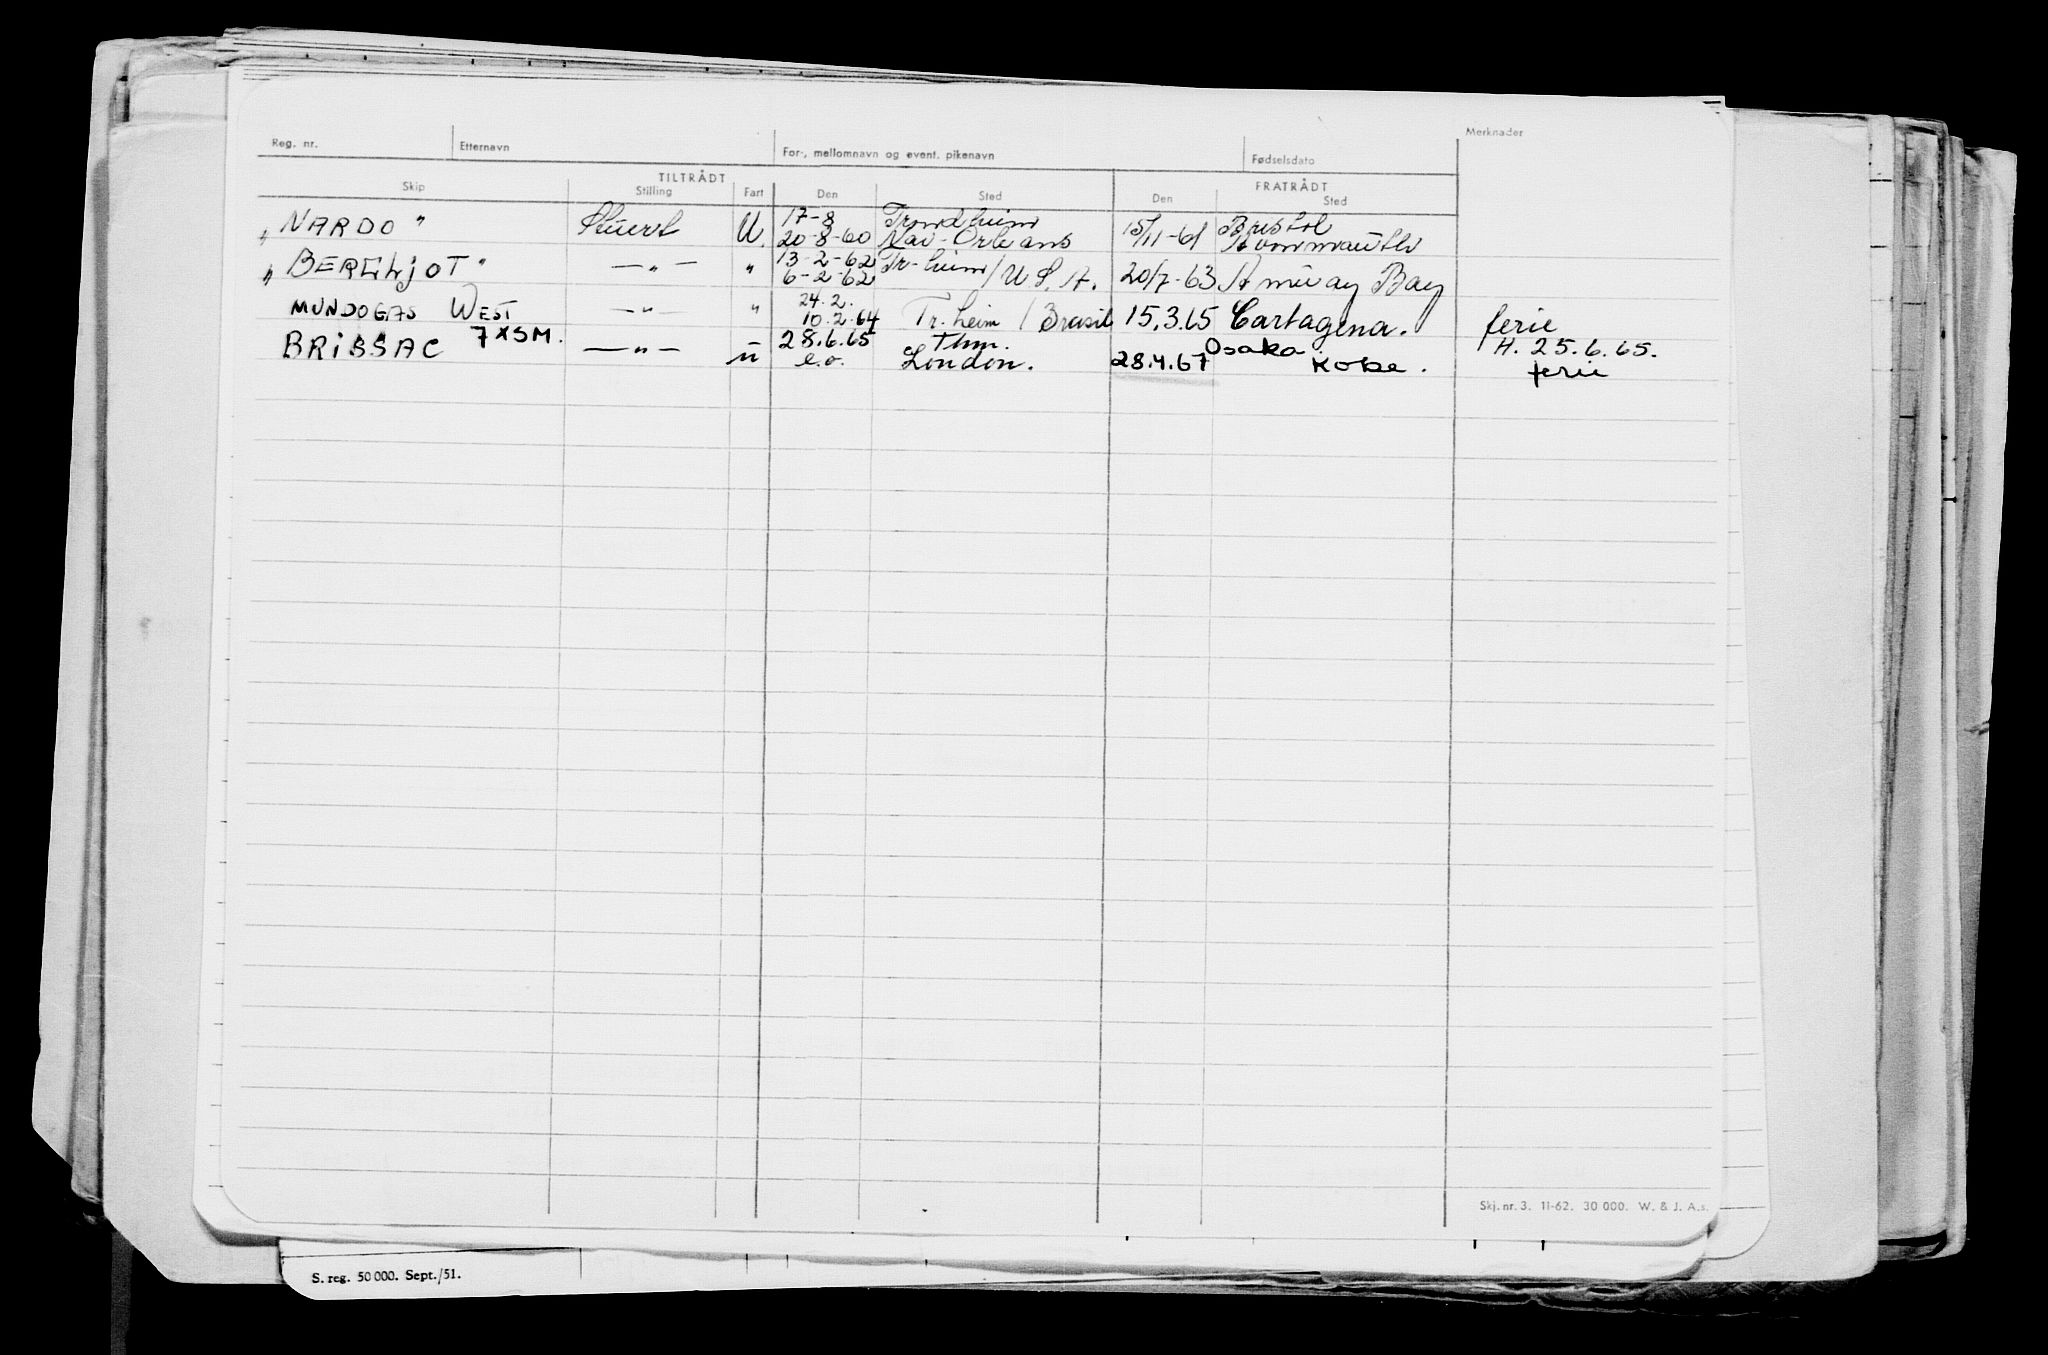 Reg. nr. Etternavn For-, mellomnavn og event. pikenavn Fødselsdato Merknader
TILTRÅDT FRATRÅDT
Skip Stilling Fart Den Sted Den Sted
„NARDO" Stuert U. 17-8 Trondheim 15/11-61 Bristol
20-8-60 Nav-Orleans Avonmouth
„BERGLJOT" —„— „ 13-2-62 Tr-heim/U.S.A. 20/7-63 Amuay Bay
6-2-62
MUNDOGAS WEST —„— „ 24.2. Tr.heim / Brasil 15.3.65 Cartagena. ferie
10.2.64
BRISSAC 7XSM. —„— u 28.6.65 Thm. 28.4.67 Osaka Kobe. H. 25.6.65.
e.o. London. ferie
Skj. nr. 3. 11-62. 30 000. W. & J. A.s.
S. reg. 50 000. Sept./51.